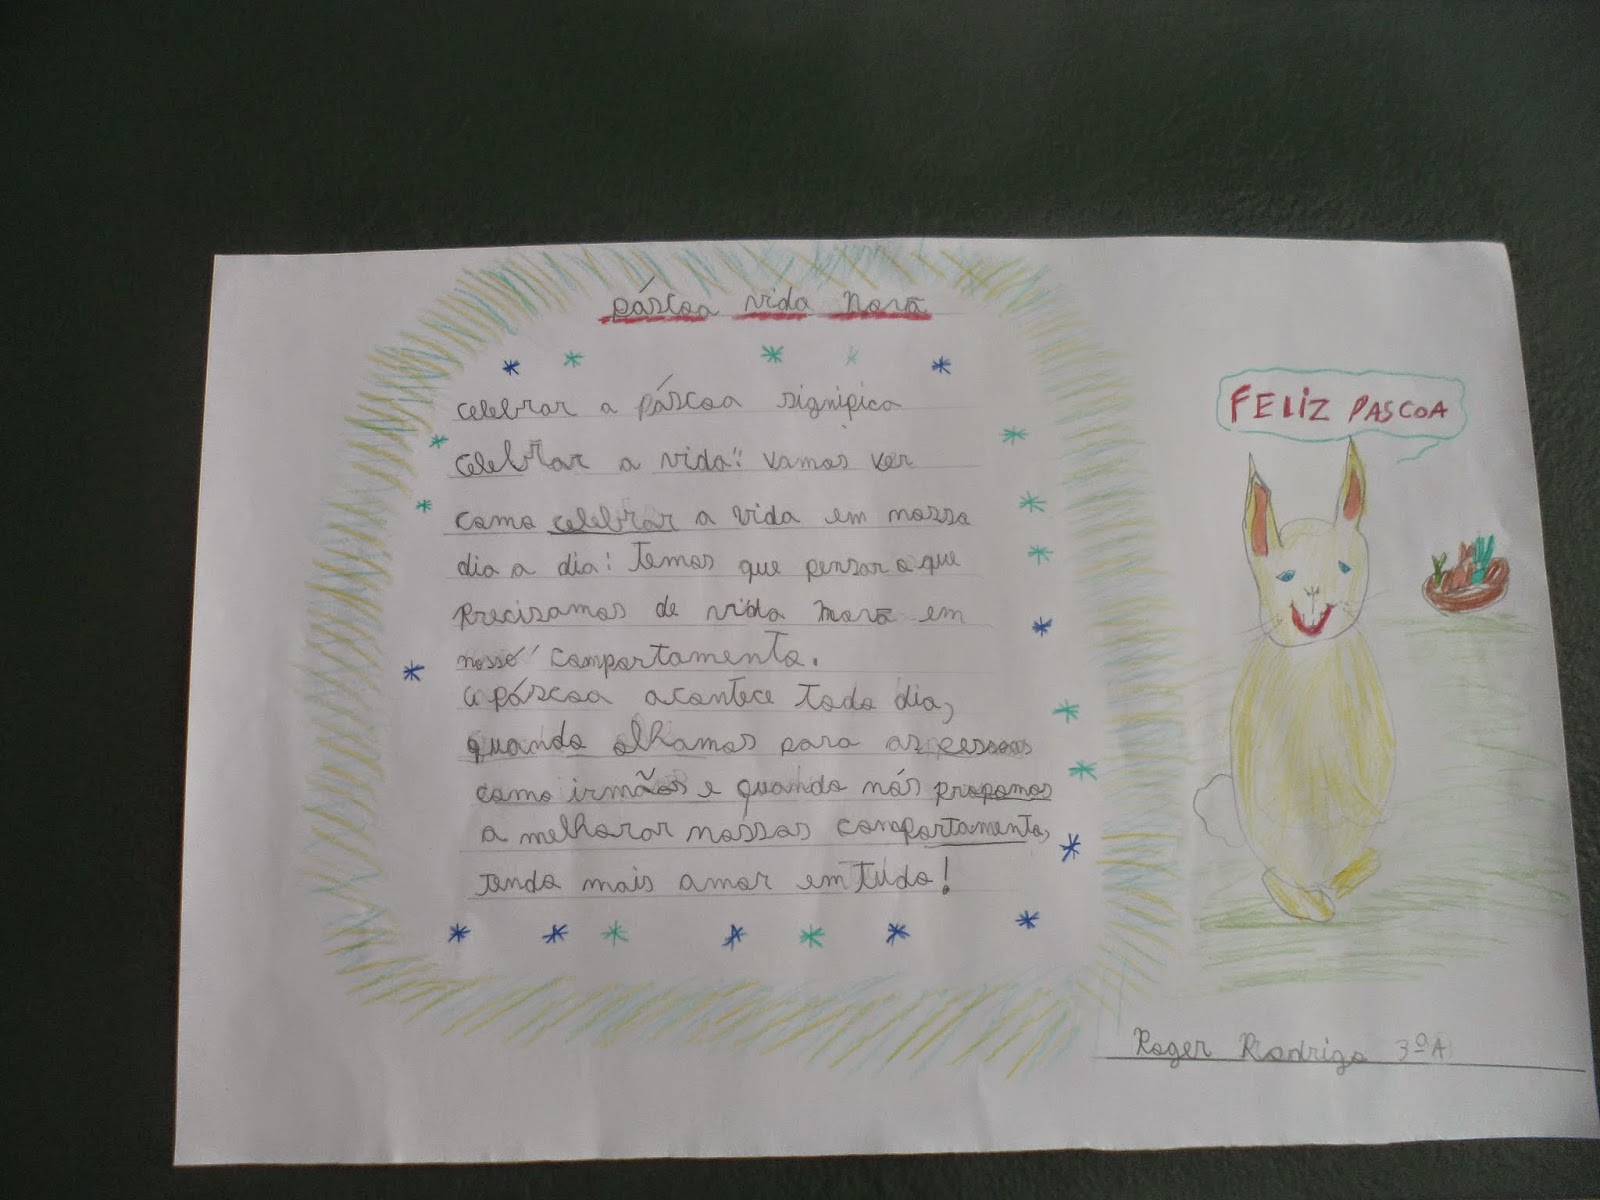 páscoa vida nova
celebrar a páscoa significa
celebrar a vida!! vamos ver
como celebrar a vida em nosso
dia a dia: temos que pensar o que
precisamos de vida nova em
nosso comportamento.
a páscoa acontece todo dia,
quando olhamos para as pessoas
como irmãos e quando nós propomos
a melhorar nossos comportamento,
tendo mais amor em tudo!
FELIZ PASCOA
Roger Rodrigo 3ºA